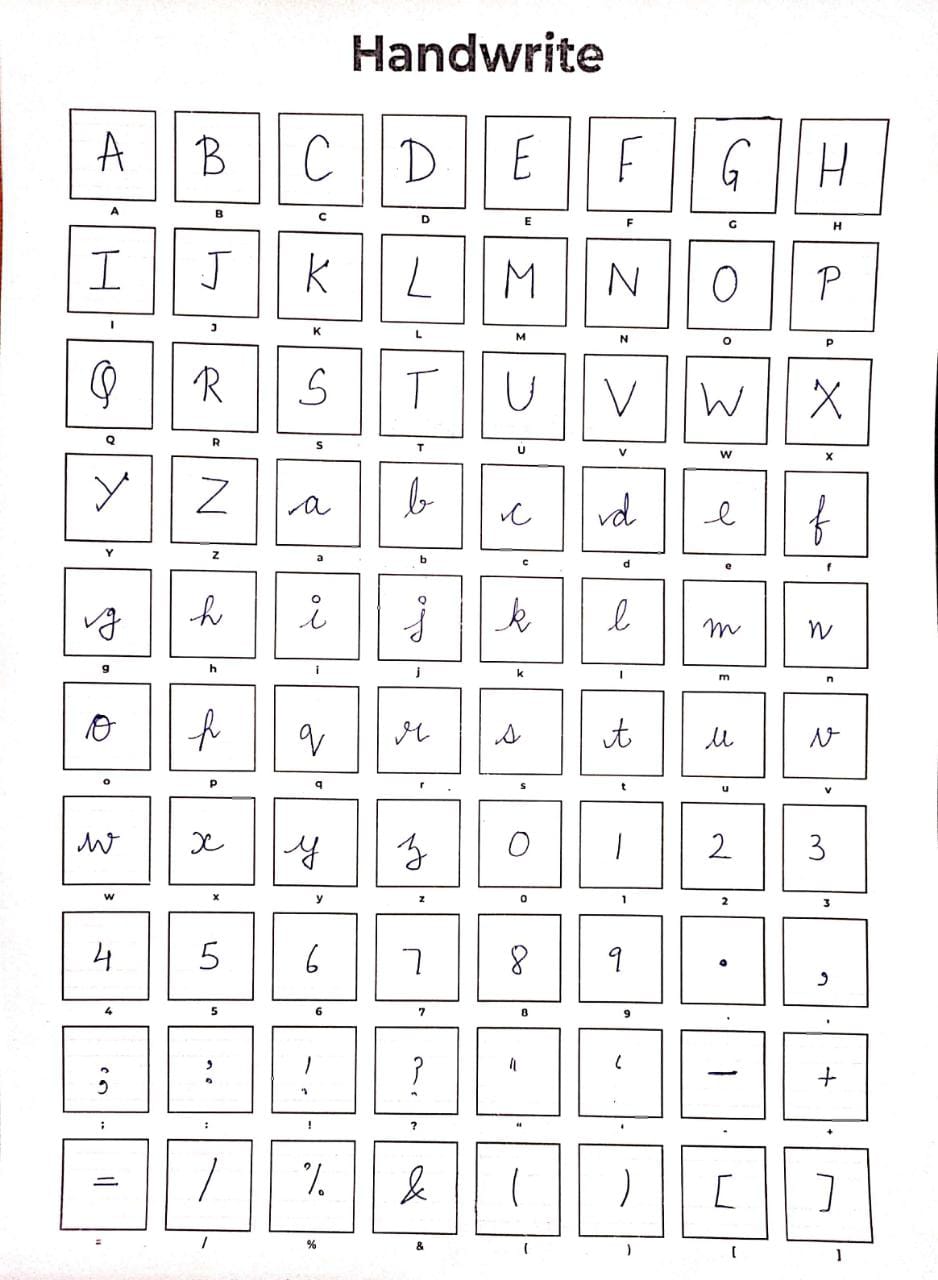 Handwrite
A B C D E F G H
A B C D E F G H
I J K L M N O P
I J K L M N O P
Q R S T U V W X
Q R S T U V W X
Y Z a b c d e f
Y Z a b c d e f
g h i j k l m n
g h i j k l m n
o p q r s t u v
o p q r s t u v
w x y z 0 1 2 3
w x y z 0 1 2 3
4 5 6 7 8 9 . ,
4 5 6 7 8 9 . ,
; : ! ? " ‘ - +
; : ! ? " ' - +
= / % & ( ) [ ]
= / % & ( ) [ ]